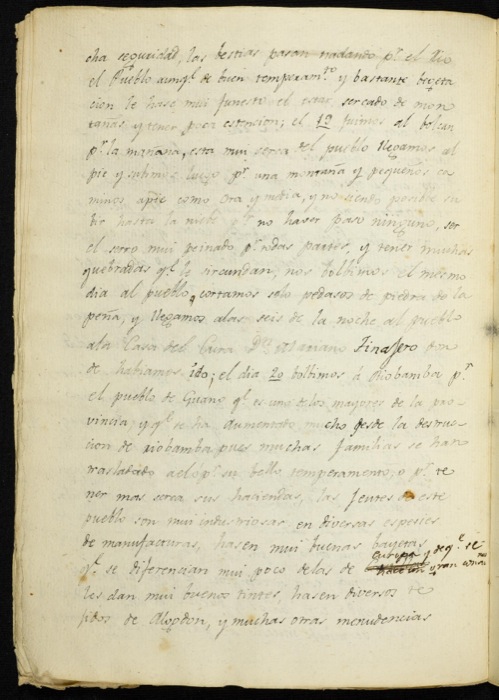 cha seguridad, las bestias pasan nadando pr. el Rio
el Pueblo aunqe. de buen temperamto. y bastante begeta
cion le hase mui funesto el estar sercado de mon
tañas y tener poca estencion; el 19 fuimos al bolcan
pr. la mañana, esta mui serca del pueblo llegamos al
pie y subimos luego pr. una montaña y pequeños ca
minos apie como ora y media, y no siendo posible su
bir hasta la niebe pr. no haser paso ninguno, ser
el serro mui peinado pr. todas partes, y tener muchas
quebradas qe. le sircundan, nos bolbimos el mesmo
dia al pueblo, cortamos solo pedasos de piedra de la
peña, y llegamos alas seis de la noche al pueblo
ala Casa del Cura Dn. Mariano Tinajero don
de habiamos ido; el dia 20 bolbimos á Riobamba pr.
el pueblo de Guano qe. es uno delos mayores de la pro
vincia y qe. se ha aumentado mucho desde la destruc
cion de riobamba pues muchas familias se han
trasladado a el pr. su bello temperamento, o pr. te
ner mas serca sus haciendas, las Jentes de este
pueblo son mui industriosas en diversas especies
de manufacturas, hasen mui buenas bayetas
qe. se diferencian mui poco delas de Europa y de qe. se
les dan mui buenos tintes, hasen diversos te
jidos de Algodon, y muchas otras menudencias